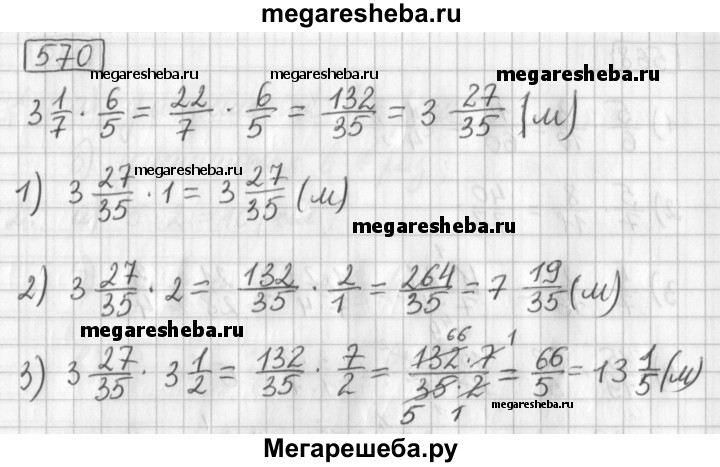 megaresheba.ru
570
megaresheba.ru megaresheba.ru
3 1/7 · 6/5 = 22/7 · 6/5 = 132/35 = 3 27/35 (м)
megaresheba.ru
1) 3 27/35 · 1 = 3 27/35 (м)
megaresheba.ru
2) 3 27/35 · 2 = 132/35 · 2/1 = 264/35 = 7 19/35 (м)
megaresheba.ru
66 1
3) 3 27/35 · 3 1/2 = 132/35 · 7/2 = 132·7/35·2 = 66/5 = 13 1/5 (м)
5 1
megaresheba.ru
Мегарешеба.ру